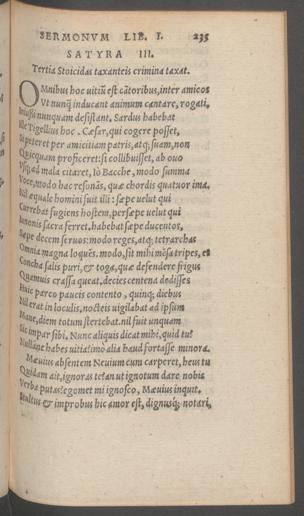 SERMONVM LIB. I. 235
SATYRA III.
Tertia Stoicidas taxanteis crimina taxat.
OMnibus hoc uitiũ est cãtoribus, inter amicos
Vt nunq̃ inducant animum cantare, rogati,
Iniussi nunquam desistant. Sardus habebat
Ille Tigellius hoc. Cæsar, qui cogere posset,
Si peteret per amicitiam patris, atq; suam, non
Quicquam proficeret: si collibuisset, ab ouo
Vsq; ad mala citaret, Iò Bacche, modo summa
Voce, modo hac resonãs, quæ chordis quatuor ima.
Nil æquale homini fuit illi: sæpe uelut qui
Currebat fugiens hostem, persæpe uelut qui
Iunonis sacra ferret, habebat sæpe ducentos,
Sæpe decem seruos: modo reges, atq; tetrarchas
Omnia magna loquẽs. modo, sit mihi mẽsa tripes, et
Concha salis puri, & toga, quæ defendere frigus
Quamuis crassa queat, decies centena dedisses
Huic parco paucis contento, quinq; diebus
Nil erat in loculis, nocteis uigilabat ad ipsum
Mane, diem totum stertebat. nil fuit unquam
Sic impar sibi. Nunc aliquis dicat mihi, quid tu?
Nullane habes uitia? imò alia haud fortasse minora.
Mæuius absentem Neuium cum carperet, heus tu
Quidam ait, ignoras te? an ut ignotum dare nobis
Verba putas? egomet mi ignosco, Mæuius inquit.
Stultus & improbus hic amor est, dignusq; notari.